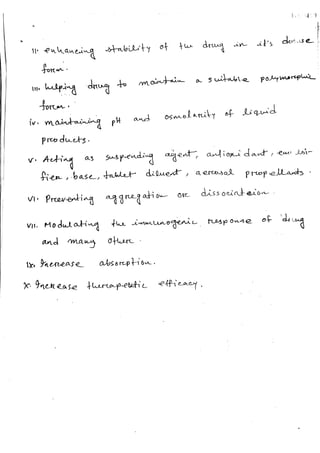 ii. enhancing stability of the drug in it's dense
form.
iii. helping drug to maintain a suitable polymorphic
form.
iv. maintaining pH and osmolarity of liquid
products.
v. Acting as suspending agent, antioxidant, emulsi-
fier, base, tablet diluent, aerosol propellants.
vi. Preventing aggregation or dissociation.
vii. Modulating the immunogenic response of drug
and many other.
ix. Increase absorption.
x. Increase therapeutic efficacy.